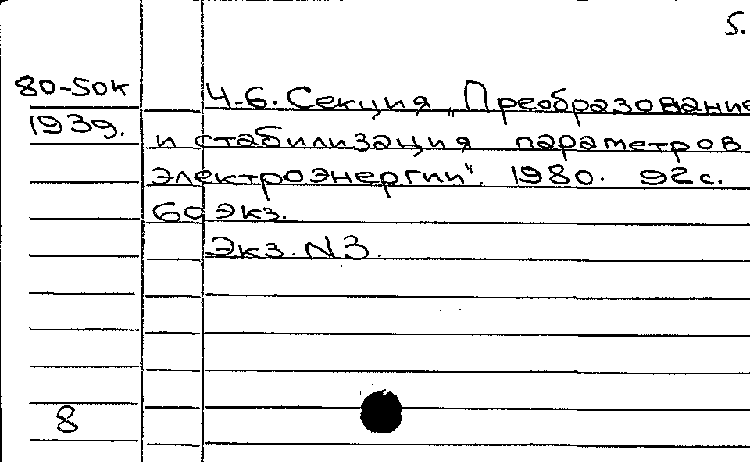 5.
80-50к Ч-6. Секция „Преобразование
1939. и стабилизация параметров
электроэнергии". 1980. 92с.
60экз.
Экз. N3.
8